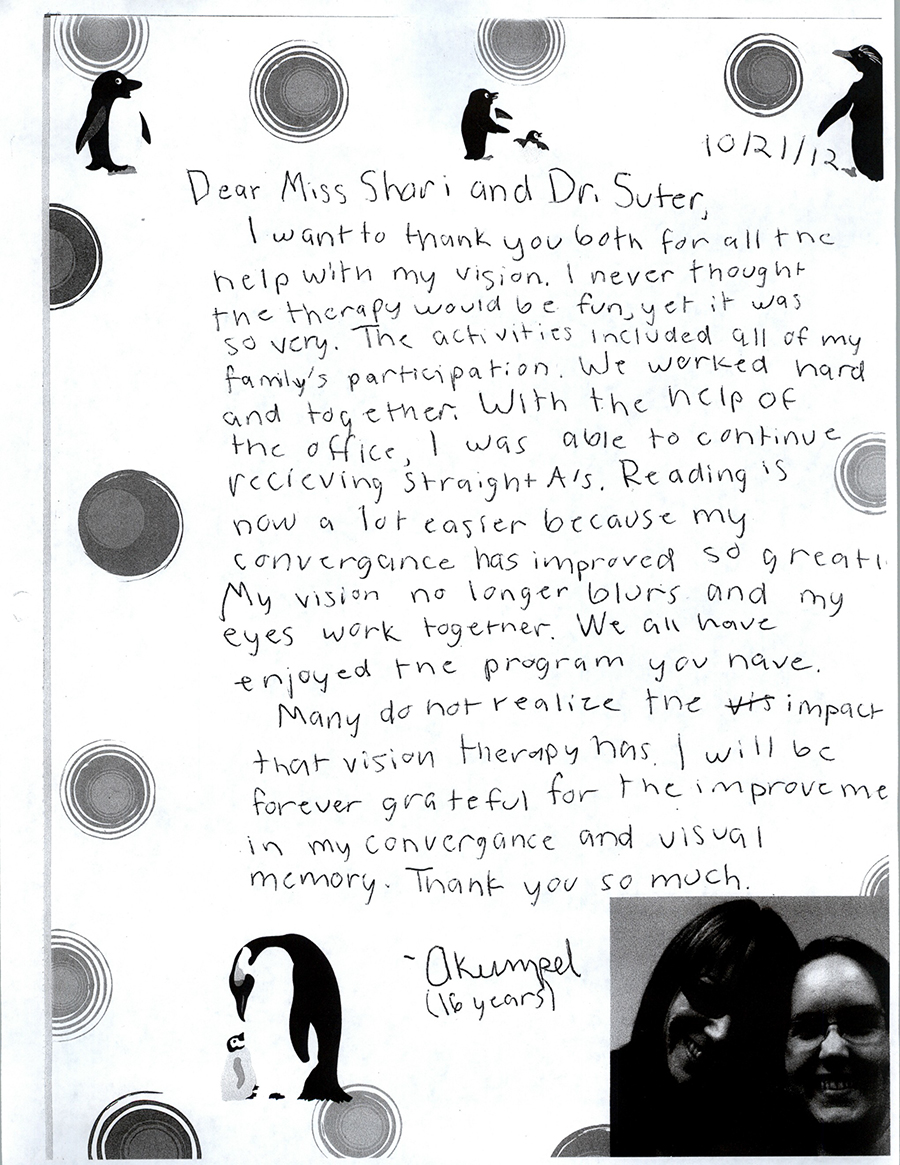 10/21/12
Dear Miss Shari and Dr. Suter,
I want to thank you both for all the
help with my vision. I never thought
the therapy would be fun, yet it was
so very. The activities included all of my
family's participation. We worked hard
and together. With the help of
the office, I was able to continue
recieving straight A's. Reading is
now a lot easier because my
convergance has improved so greatl
My vision no longer blurs and my
eyes work together. We all have
enjoyed the program you have.
Many do not realize the vis impact
that vision therapy has. I will be
forever grateful for the improveme
in my convergance and visual
memory. Thank you so much.
(16 years)